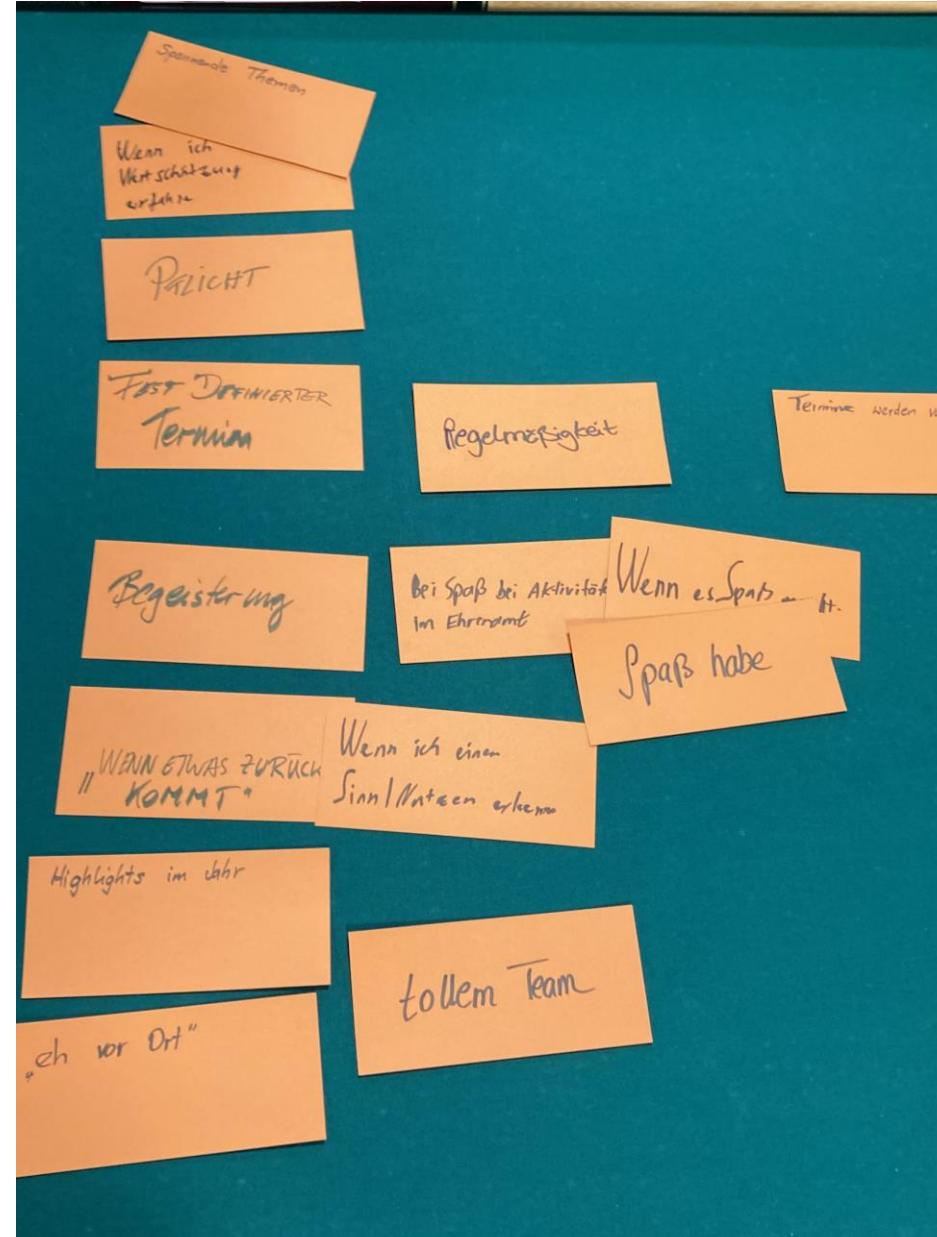 Spannende Themen
Wenn ich
Wertschätzung
erfahre
PFLICHT
FEST DEFINIERTER
Termin
Regelmäßigkeit
Termine werden
Begeisterung
Bei Spaß bei Aktivität
im Ehrenamt
Wenn es Spaß
Spaß habe
„WENN ETWAS ZURÜCK
KOMMT“
Wenn ich einen
Sinn/Nutzen erkenne
Highlights im Jahr
tollem Team
„eh vor Ort“